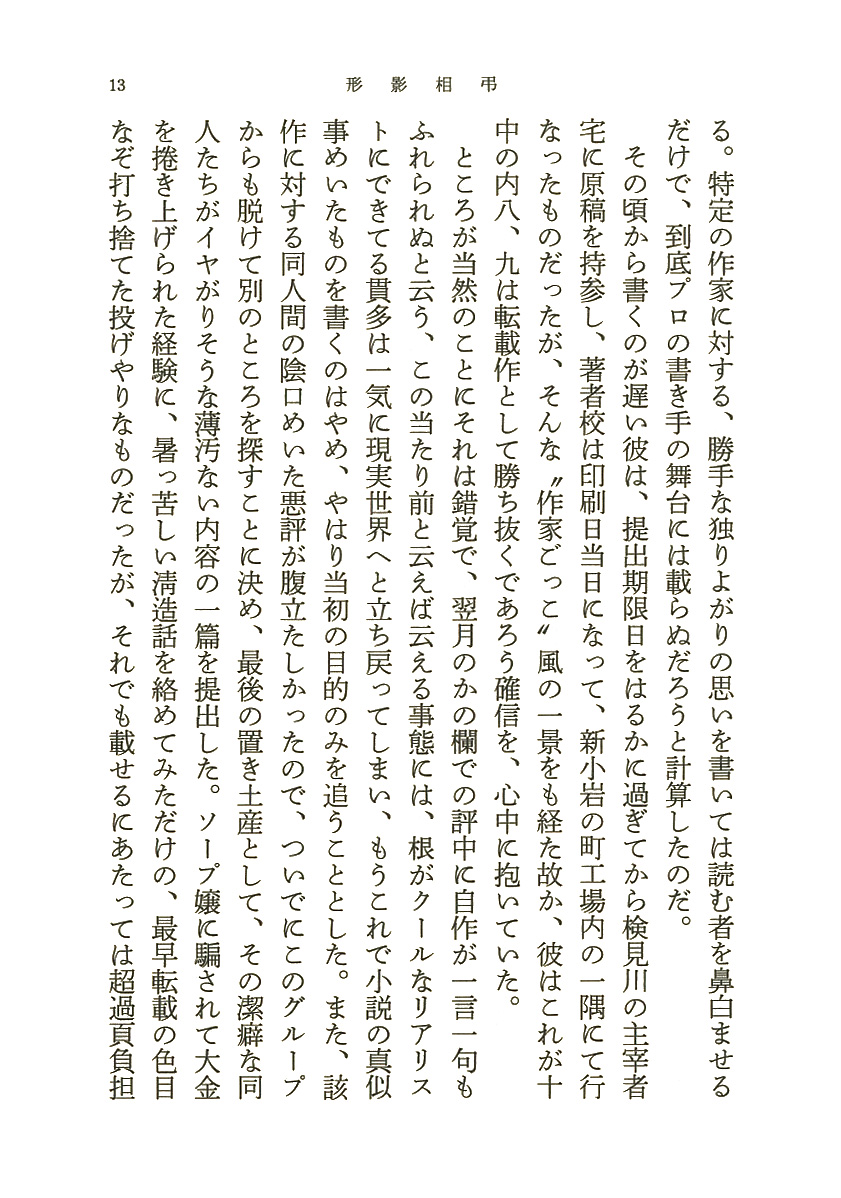 13
形影相弔
る。特定の作家に対する、勝手な独りよがりの思いを書いては読む者を鼻白ませる
だけで、到底プロの書き手の舞台には載らぬだろうと計算したのだ。
その頃から書くのが遅い彼は、提出期限日をはるかに過ぎてから検見川の主宰者
宅に原稿を持参し、著者校は印刷日当日になって、新小岩の町工場内の一隅にて行
なったものだったが、そんな〝作家ごっこ〟風の一景をも経た故か、彼はこれが十
中の内八、九は転載作として勝ち抜くであろう確信を、心中に抱いていた。
ところが当然のことにそれは錯覚で、翌月のかの欄での評中に自作が一言一句も
ふれられぬと云う、この当たり前と云えば云える事態には、根がクールなリアリス
トにできてる貫多は一気に現実世界へと立ち戻ってしまい、もうこれで小説の真似
事めいたものを書くのはやめ、やはり当初の目的のみを追うこととした。また、該
作に対する同人間の陰口めいた悪評が腹立たしかったので、ついでにこのグループ
からも脱けて別のところを探すことに決め、最後の置き土産として、その潔癖な同
人たちがイヤがりそうな薄汚ない内容の一篇を提出した。ソープ嬢に騙されて大金
を捲き上げられた経験に、暑っ苦しい清造話を絡めてみただけの、最早転載の色目
なぞ打ち捨てた投げやりなものだったが、それでも載せるにあたっては超過頁負担